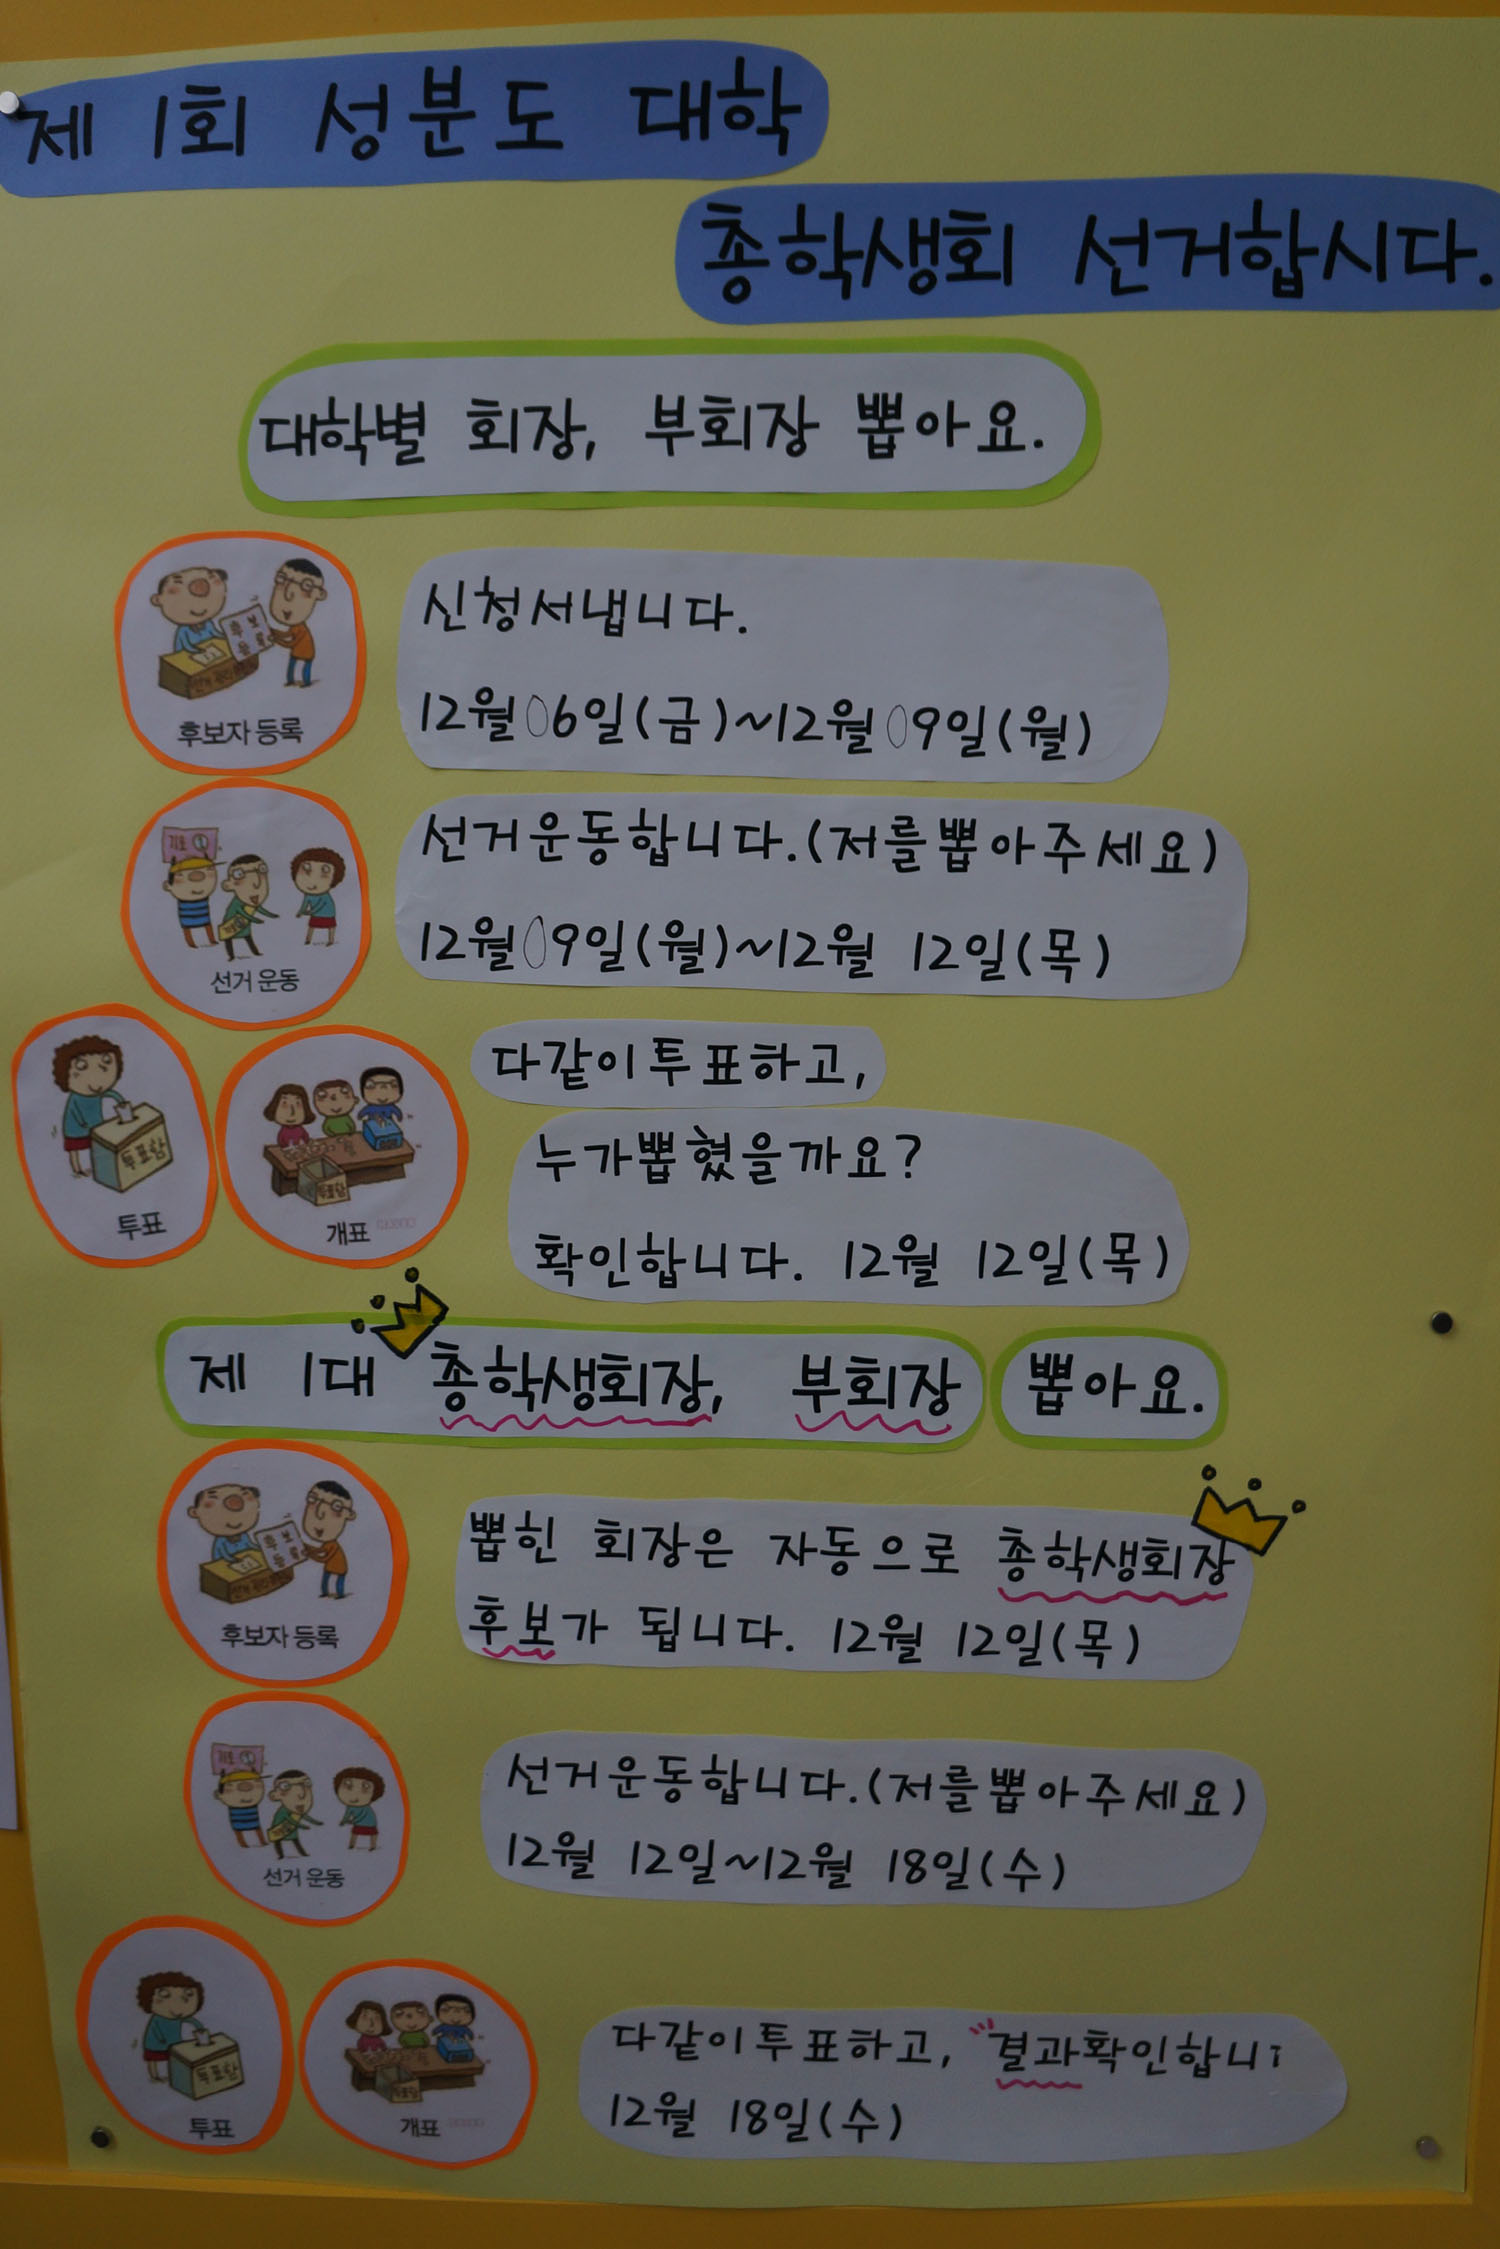 제 1회 성분도 대학
총학생회 선거합시다.
대학별 회장, 부회장 뽑아요.
후보 등록
후보자 등록
신청서냅니다.
12월 06일(금)~12월 09일(월)
기호 1
선거 운동
선거운동합니다.(저를뽑아주세요)
12월 09일(월)~12월 12일(목)
투표함
투표
투표함
개표
다같이투표하고,
누가뽑혔을까요?
확인합니다. 12월 12일(목)
제 1대 총학생회장, 부회장 뽑아요.
후보 등록
후보자 등록
뽑힌 회장은 자동으로 총학생회장
후보가 됩니다. 12월 12일(목)
기호 1
선거 운동
선거운동합니다.(저를뽑아주세요)
12월 12일~12월 18일(수)
투표함
투표
투표함
개표
다같이투표하고, 결과확인합니
12월 18일(수)